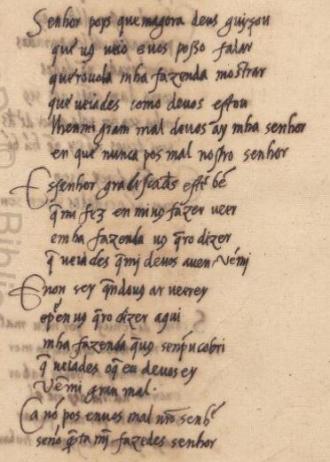 Senhor poys que magora deus guysou
que u9 veio e uos posso falar
querouola mha fazenda mostrar
que ueiades como deuos estou
uhenmi gram mal deuos ay mha senhor
en que nunca pos mal nostro senhor
E senhor gradescades este bē
q̄ mi fez en mi u9 fazer ueer
e mha fazenda u9 q̄ro dizer
q̄ ueiades q̄mi deuos auen
E non sey q̄ndou9 ar ueerey
e pēn u9 q̄ro dizer aqui
mha fazenda q̄u9 senp̄ncobri
q̄ ueiades oq̄ eu deuos ey
Vēmi gram mal.
Ca nō pos en uos mal nr̄o senh̄
senō q̄ta mī fazedes senhor